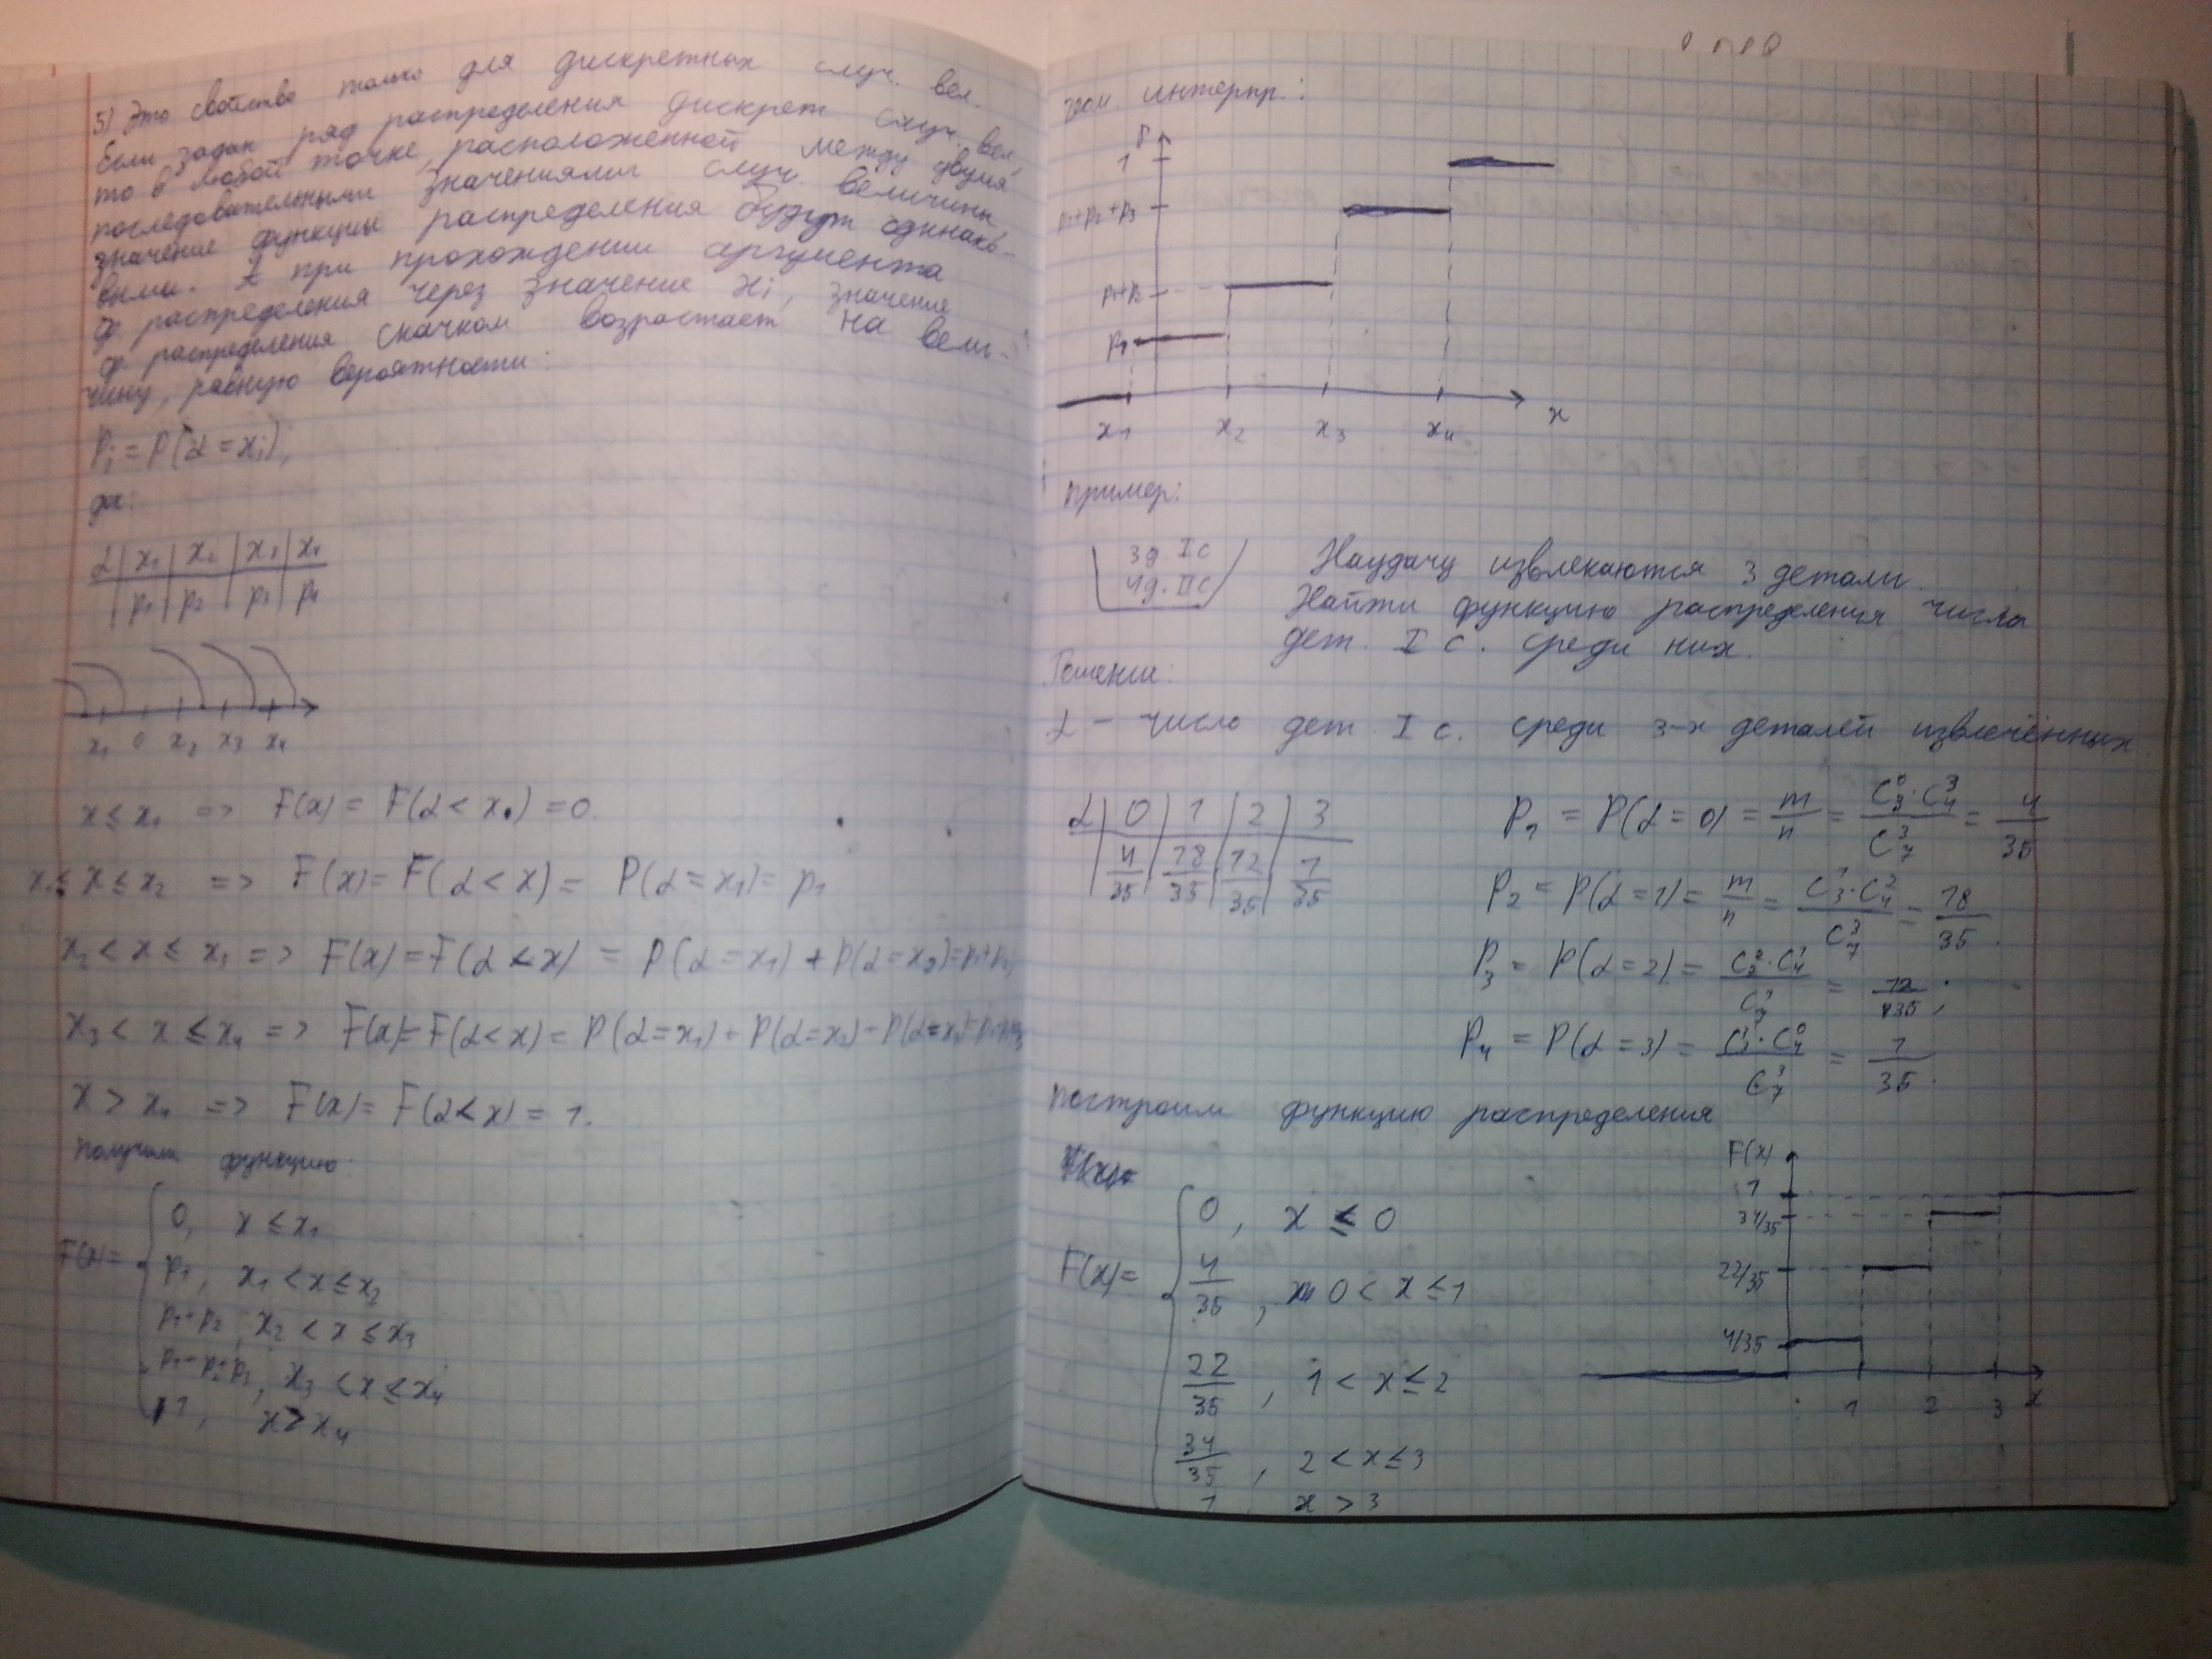 5) Это свойство только для дискретных случ. вел.
Если задан ряд распределения дискрет. случ. вел,
то в любой точке, расположенной между двумя
последовательными значениями случ. величины
значение функции распределения будут одинако-
выми. А при прохождении аргумента
ф. распределения через значение xi, значение
ф. распределения скачком возрастает на вели-
чину, равную вероятности:
Pi = P(α = xi),
α | x1 | x2 | x3 | x4
| p1 | p2 | p3 | p4
x1 0 x2 x3 x4
x ≤ x1 => F(x) = F(α < x) = 0.
x1 ≤ x ≤ x2 => F(x) = F(α < x) = P(α = x1) = p1
x2 < x ≤ x3 => F(x) = F(α < x) = P(α = x1) + P(α = x2) = p1+p2
x3 < x ≤ x4 => F(x) = F(α < x) = P(α = x1) + P(α = x2) + P(α = x3) =
x > x4 => F(x) = F(α < x) = 1.
Получили функцию:
F(x) =
0, x ≤ x1
p1, x1 < x ≤ x2
p1+p2, x2 < x ≤ x3
p1+p2+p3, x3 < x ≤ x4
1, x > x4
геом. интерпр.:
1
p1+p2+p3
p1+p2
p1
x1 x2 x3 x4 x
Пример:
3д. I с
4д. II с
Наудачу извлекаются 3 детали.
Найти функцию распределения числа
дет. I с. среди них.
Решение:
α – число дет. I с. среди 3-х деталей извлечённых.
α | 0 | 1 | 2 | 3
| 4/35 | 18/35 | 12/35 | 1/35
P1 = P(α = 0) = m/n = C₃⁰·C₄³/C₇³ = 4/35
P2 = P(α = 1) = m/n = C₃¹·C₄²/C₇³ = 18/35.
P3 = P(α = 2) = C₃²·C₄¹/C₇³ = 12/35;
P4 = P(α = 3) = C₃³·C₄⁰/C₇³ = 1/35.
Построим функцию распределения
F(x) =
0, x ≤ 0
4/35, 0 < x ≤ 1
22/35, 1 < x ≤ 2
34/35, 2 < x ≤ 3
1, x > 3
F(x)
1
34/35
22/35
4/35
1 2 3 x